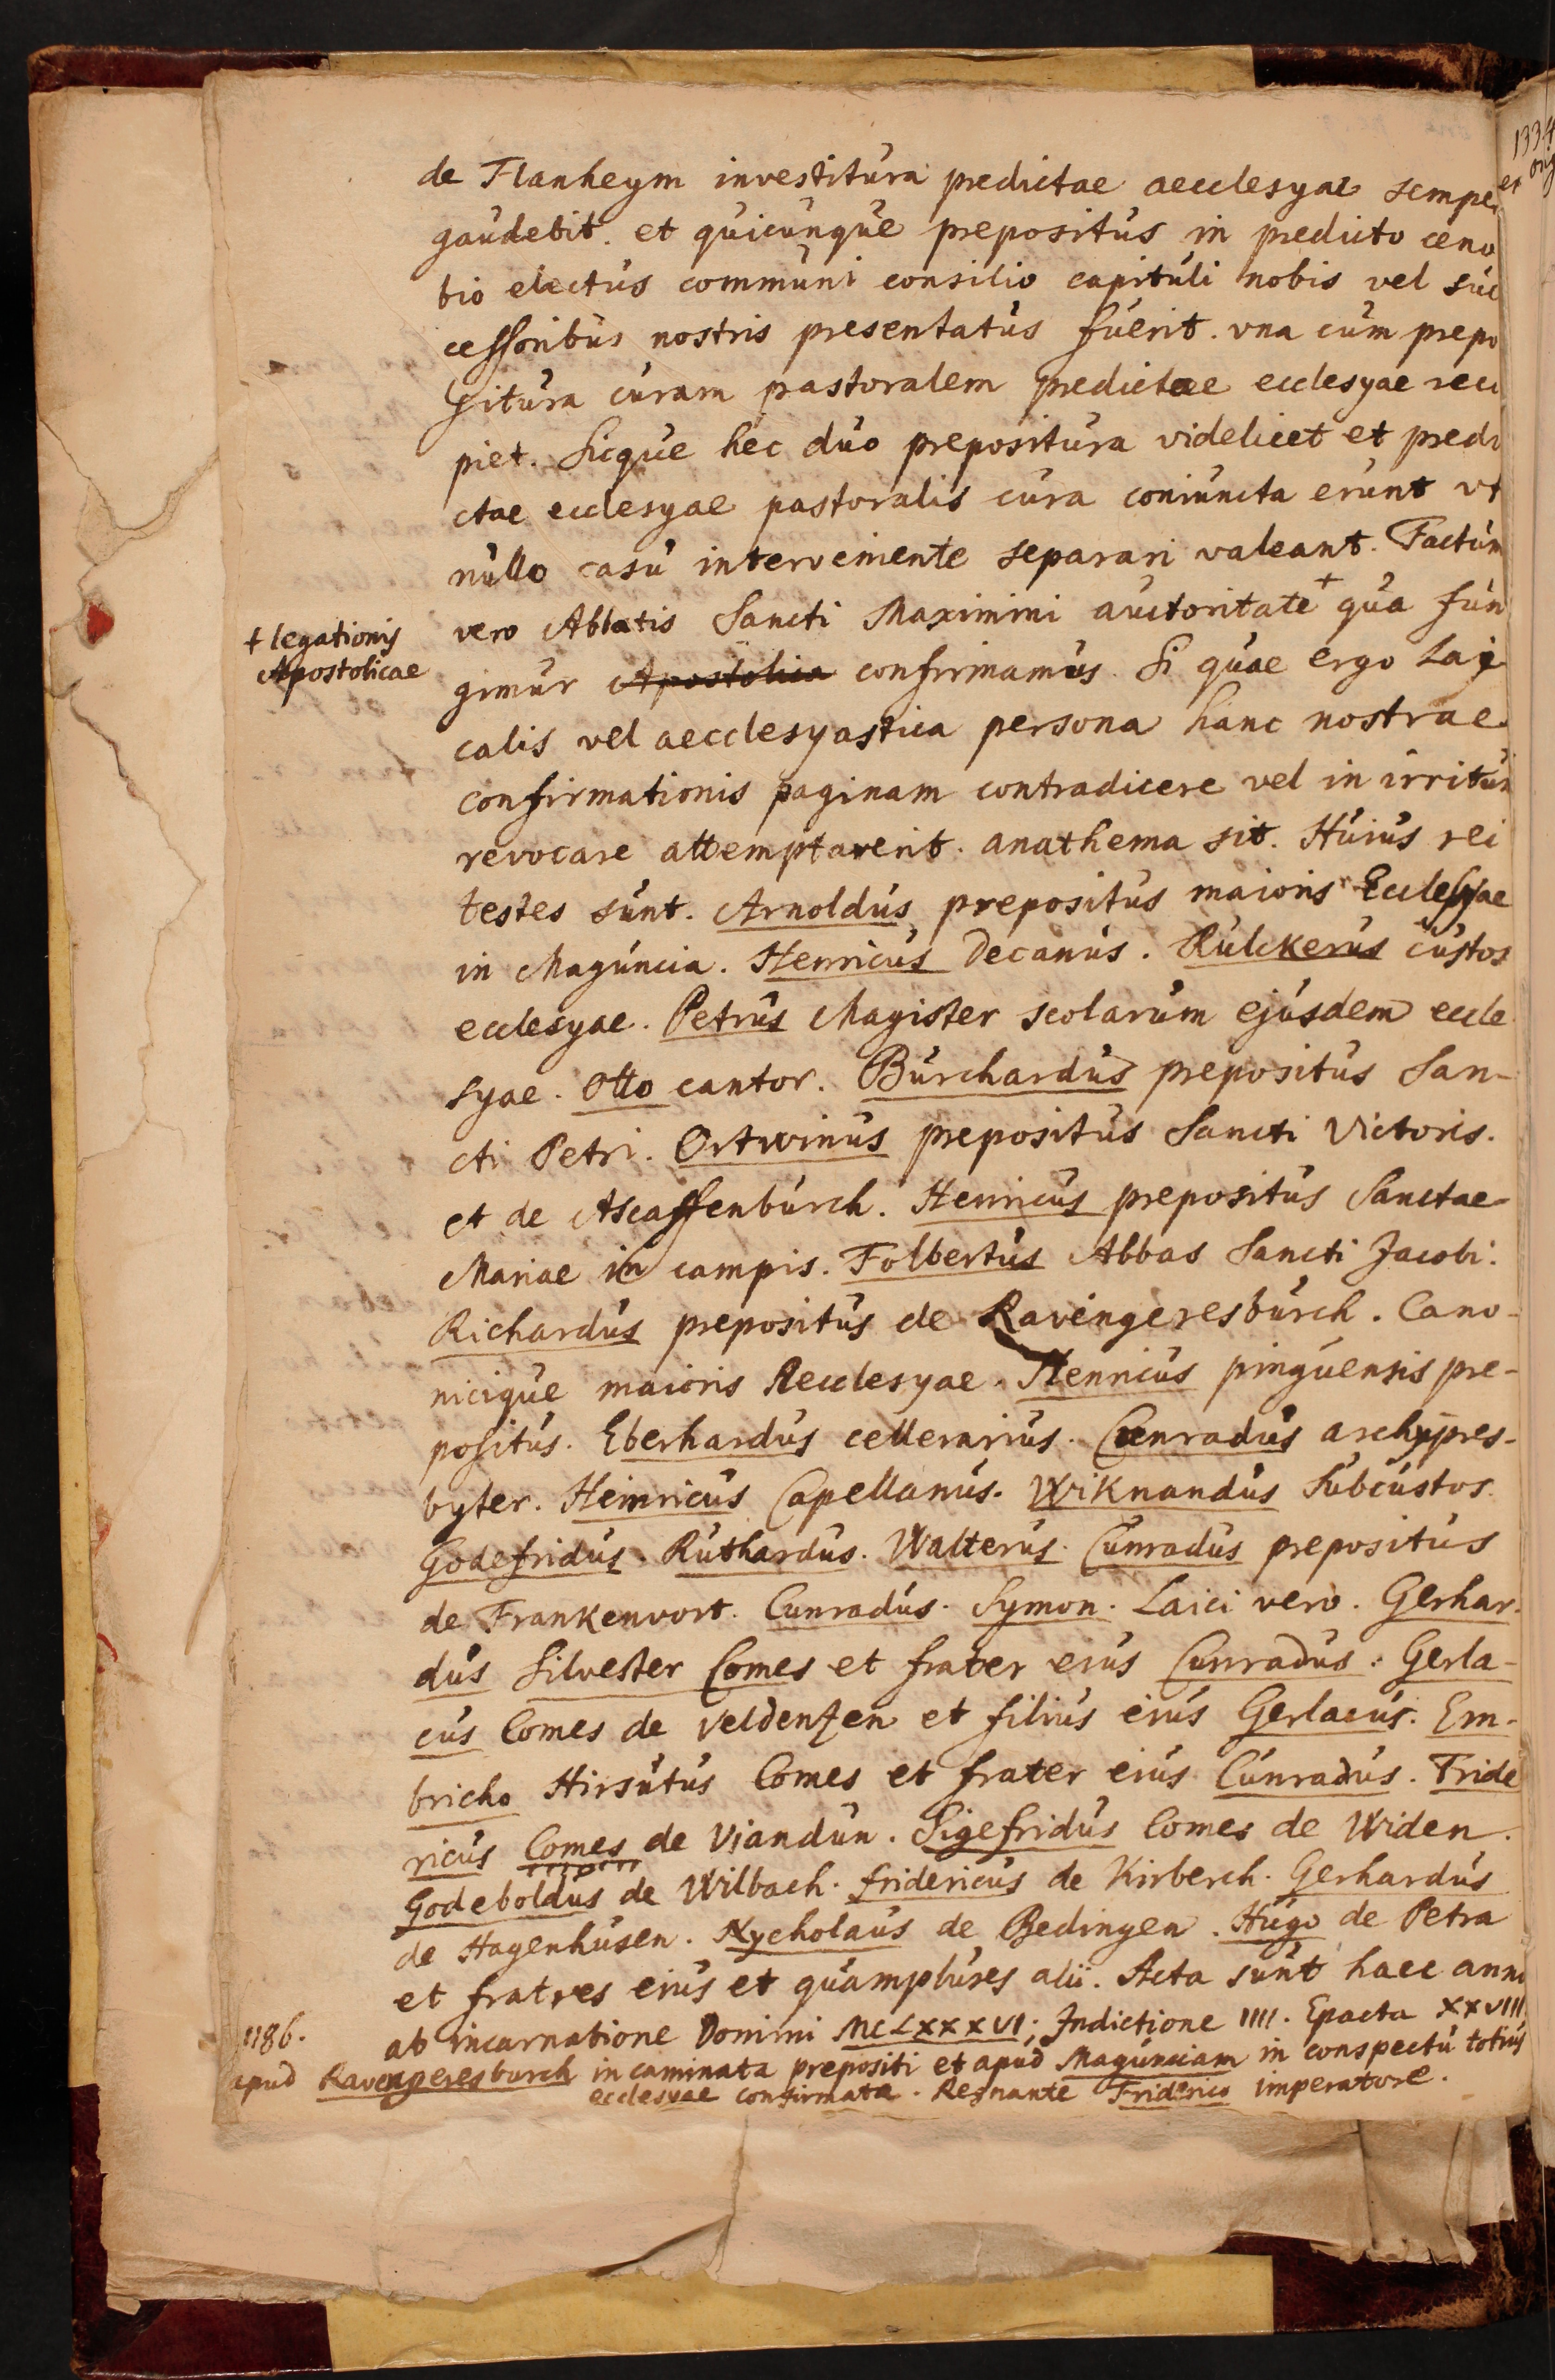 de Flanheym investitura predictae aecclesyae semper
gaudebit. et quicunque prepositus in predicto ceno
bio electus communi consilio capituli nobis vel suc
cessoribus nostris presentatus fuerit. vna cum prepo
situra curam pastoralem predictae ecclesyae reci
piet. Sicque hec duo prepositura videlicet et predi
ctae ecclesyae pastoralis cura coniuncta erunt vt
nullo casu interveniente separari valeant. Factum
vero Abbatis Sancti Maximini auctoritate + qua fun
+ legationis
Apostolicae
gimur Apostolica confirmamus. Si quae ergo Lai
calis vel aecclesyastica persona hanc nostrae
confirmationis paginam contradicere vel in irritum
revocare attemptaverit. anathema sit. Huius rei
testes sunt. Arnoldus prepositus maioris Ecclesyae
in Maguncia. Henricus Decanus. Hulckerus custos
ecclesyae. Petrus Magister scolarum ejusdem eccle
syae. Otto cantor. Burchardus prepositus San-
cti Petri. Ortwinus prepositus Sancti Victoris.
et de Ascaffenburch. Henricus prepositus Sanctae
Mariae in campis. Folbertus Abbas Sancti Jacobi.
Richardus prepositus de Ravengeresburch. Cano-
nicique maioris Aecclesyae. Henricus pinguensis pre-
positus. Eberhardus cellerarius. Cunradus archypres-
byter. Heinricus Capellanus. Wiknandus Subcustos.
Godefridus. Ruthardus. Walterus. Cunradus prepositus
de Frankenvort. Cunradus. Symon. Laici vero. Gerhar-
dus Silvester Comes et frater eius Cunradus. Gerla-
cus Comes de Veldenzen et filius eius Gerlacus. Em-
bricho Hirsutus Comes et frater eius Cunradus. Fride
ricus Comes de Viandun. Sigefridus Comes de Widen.
Godeboldus de Wilbach. fridericus de Kirberch. Gerhardus
de Hagenhusen. Nycholaus de Bedingen. Hugo de Petra
et fratres eius et quamplures alii. Acta sunt haec anno
1186.
ab incarnatione Domini MCLXXXVI; Indictione IIII. Epacta XXVIII
apud Ravengeresburch in caminata prepositi et apud Magunciam in conspectu totius
ecclesyae confirmata. Regnante Friderico imperatore.
1334
et orig